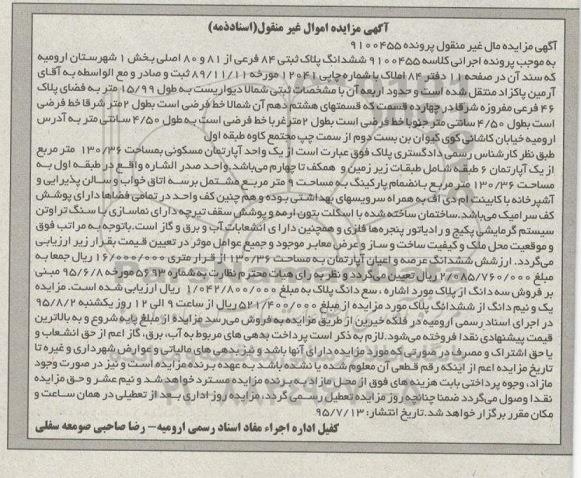 آگهی مزایده اموال غیر منقول(اسنادذمه)
آگهی مزایده مال غیر منقول پرونده ۹۱۰۰۴۵۵
به موجب پرونده اجرائی کلاسه ۹۱۰۰۴۵۵ ششدانگ پلاک ثبتی ۸۴ فرعی از ۸۱ و ۸۰ اصلی بخش ۱ شهرستان ارومیه
که سند آن در صفحه ۱۱ دفتر ۸۴ املاک با شماره چاپی ۱۲۰۴۱ مورخه ۸۹/۱۱/۱۱ ثبت و صادر و مع الواسطه به آقای
آرمین پاکزاد منتقل شده است و حدود اربعه آن با مشخصات ثبتی شمالا دیواریست به طول ۱۵/۹۹ متر به فضای پلاک
۴۶ فرعی مفروزه شرقا در چهارده قسمت که قسمتهای هشتم دهم آن شمالا خط فرضی است بطول ۲متر شرقا خط فرضی
است بطول ۴/۵۰ سانتی متر جنوبا خط فرضی است بطول ۲متر غربا خط فرضی است به طول ۴/۵۰ سانتی متر به آدرس
ارومیه خیابان کاشانی کوی کیوان بن بست دوم از سمت چپ مجتمع کاوه طبقه اول
طبق نظر کارشناس رسمی دادگستری پلاک فوق عبارت است از یک واحد آپارتمان مسکونی بمساحت ۱۳۰/۳۶ متر مربع
از یک آپارتمان ۶ طبقه شامل طبقات زیر زمین و همکف تا چهارم می‌باشد. واحد صدر الشاره واقع در طبقه اول به
مساحت ۱۳۰/۳۶ متر مربع بانضمام پارکینگ به مساحت متر مربع مشتمل برسه اتاق خواب و سالن پذیرایی و
آشپزخانه با کابینت ام دی اف به همراه سرویسهای بهداشتی بوده و هم چنین کف واحد در تمامی فضاها دارای پوشش
کف سرامیک می‌باشد. ساختمان ساخته شده با اسکلت بتون آرمه و پوشش سقف تیرچه دارای نماسازی با سنگ تراوتن
سیستم گرمایشی پکیج و رادیاتور پنجره‌ها فلزی و همچنین دارا ی انشعابات آب و برق و گاز است. باتوجه به مراتب فوق
و موقعیت محل ملک و کیفیت ساخت و ساز و عرض معابر موجود و جمیع عوامل موثر در تعیین قیمت بقرار زیر ارزیابی
می‌گردد. ارزشش ششدانگ عرصه و اعیان آپارتمان به مساحت ۱۳۰/۳۶ از قرار متری ۱۶/۰۰۰/۰۰۰ ریال جمعا به
مبلغ ۲/۰۸۵/۷۶۰/۰۰۰ ریال تعیین می‌گردد و نظر به رای هیات محترم نظارت به شماره ۵۶۹۳ مورخه ۹۵/۶/۸ مبنی
بر فروش سه دانگ از پلاک مورد اشاره ، سع دانگ پلاک به مبلغ ۱/۰۴۲/۸۰۰/۰۰۰ ریال ارزیابی شده است. مزایده
یک و نیم دانگ از ششدانگ پلاک مورد مزایده از مبلغ ۵۲۱/۴۰۰/۰۰۰ ریال از ساعت ۹ الی ۱۲ روز یکشنبه ۹۵/۸/۲
در اجرای اسناد رسمی ارومیه در فلکه خیرین از طریق مزایده به فروش می‌رسد مزایده از مبلغ پایه شروع و به بالاترین
قیمت پیشنهادی نقدا فروخته می‌شود. لازم به ذکر است پرداخت بدهی های مربوط به آب، برق، گاز اعم از حق انشعاب و
یا حق اشتراک و مصرف در صورتی که مورد مزایده دارای آنها باشد و نیز بدهی های مالیاتی و عوارض شهرداری و غیره تا
تاریخ مزایده اعم از اینکه رقم قطعی آن معلوم شده یا نشده باشد به عهده برنده مزایده است و نیز در صورت وجود
مازاد، وجوه پرداختی بابت هزینه های فوق از محل مازاد به برنده مزایده مسترد خواهد شد و نیم عشر و حق مزایده
نقدا وصول می‌گردد ضمنا چنانچه روز مزایده تعطیل رسمی گردد، مزایده روز اداری بعد از تعطیلی در همان ساعت و
مکان مقرر برگزار خواهد شد. تاریخ انتشار: ۹۵/۷/۱۳
کفیل اداره اجراء مفاد اسناد رسمی ارومیه- رضا صاحبی صومعه سفلی